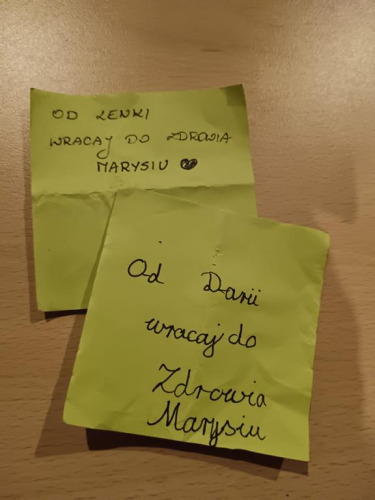 OD LENKI
WRACAJ DO ZDROWIA
MARYSIU
Od Darii
wracaj do
Zdrowia
Marysiu